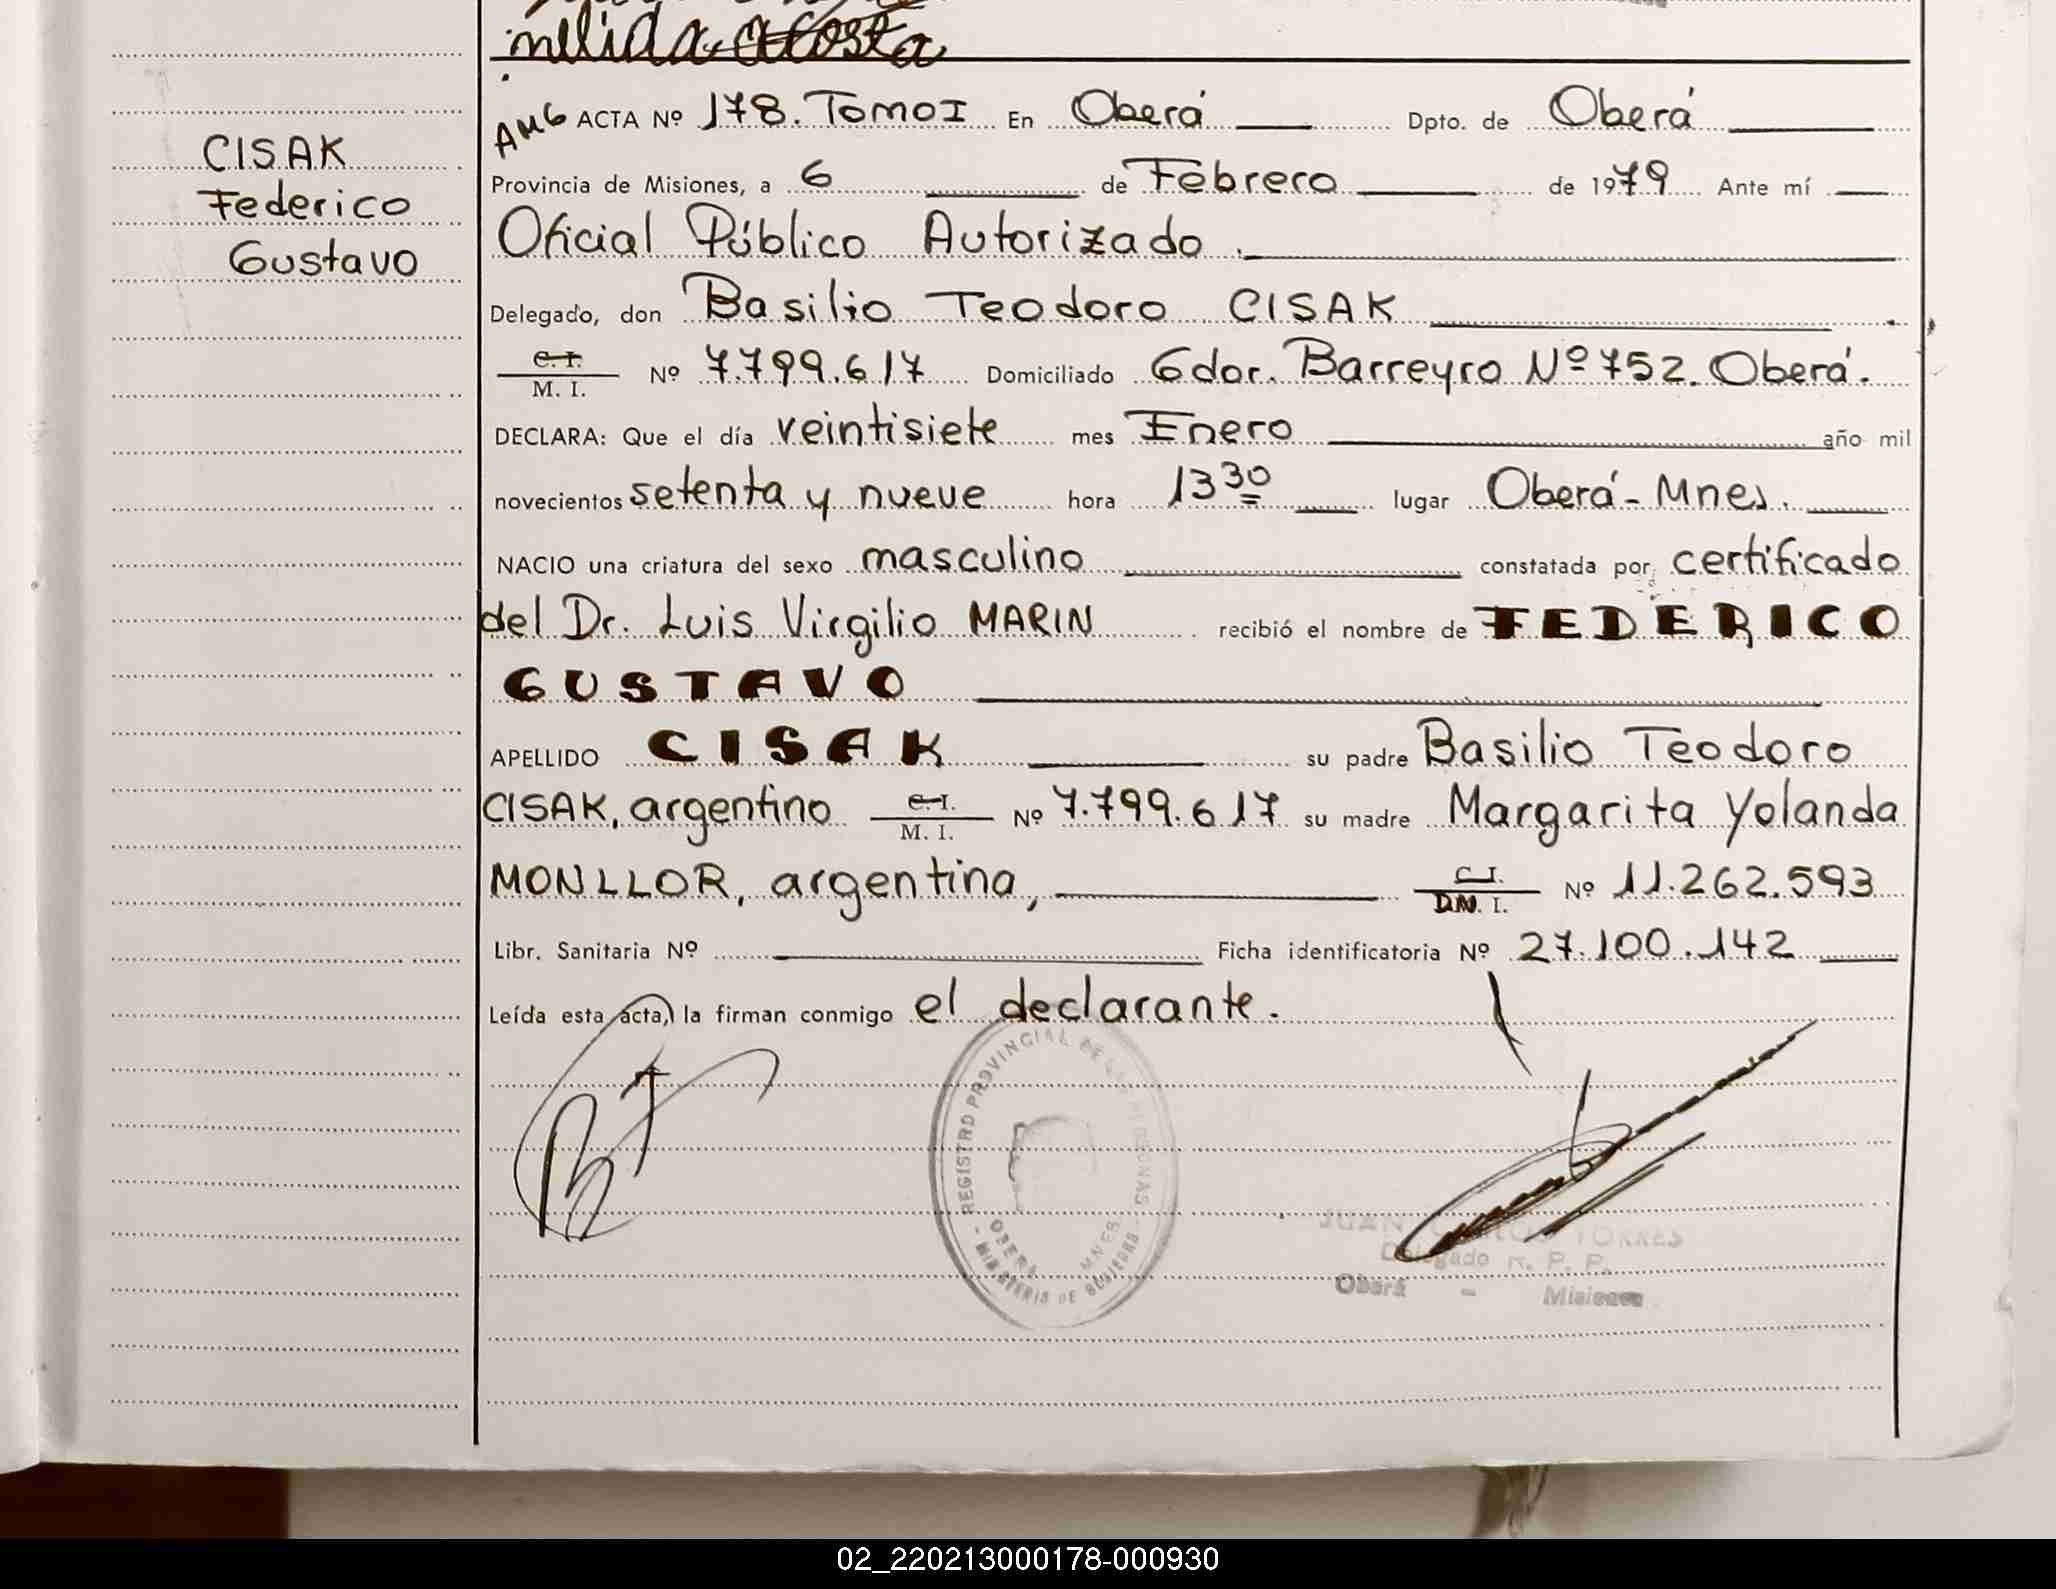 nelida acosta
AMG ACTA Nº 178. Tomo I En Oberá Dpto. de Oberá
CISAK
Provincia de Misiones, a 6 de Febrero de 1979 Ante mí
Federico
Oficial Público Autorizado.
Gustavo
Delegado, don Basilio Teodoro CISAK
C. I.
M. I. Nº 7.799.617 Domiciliado Gdor. Barreyro Nº 752. Oberá.
DECLARA: Que el día veintisiete mes Enero año mil
novecientos setenta y nueve hora 13 30 lugar Oberá - Mnes.
NACIO una criatura del sexo masculino constatada por certificado
del Dr. Luis Virgilio MARIN recibió el nombre de FEDERICO
GUSTAVO
APELLIDO CISAK su padre Basilio Teodoro
CISAK, argentino C. I. M. I. Nº 7.799.617 su madre Margarita Yolanda
MONLLOR, argentina, C. I. D.N. I. Nº 11.262.593
Libr. Sanitaria Nº Ficha identificatoria Nº 27.100.142
Leída esta acta, la firman conmigo el declarante.
REGISTRO PROVINCIAL DE LAS PERSONAS
OBERA MNES.
- MINISTERIO DE GOBIERNO -
JUAN CARLOS TORRES
Delegado R. P. P.
Oberá - Misiones
02_220213000178-000930